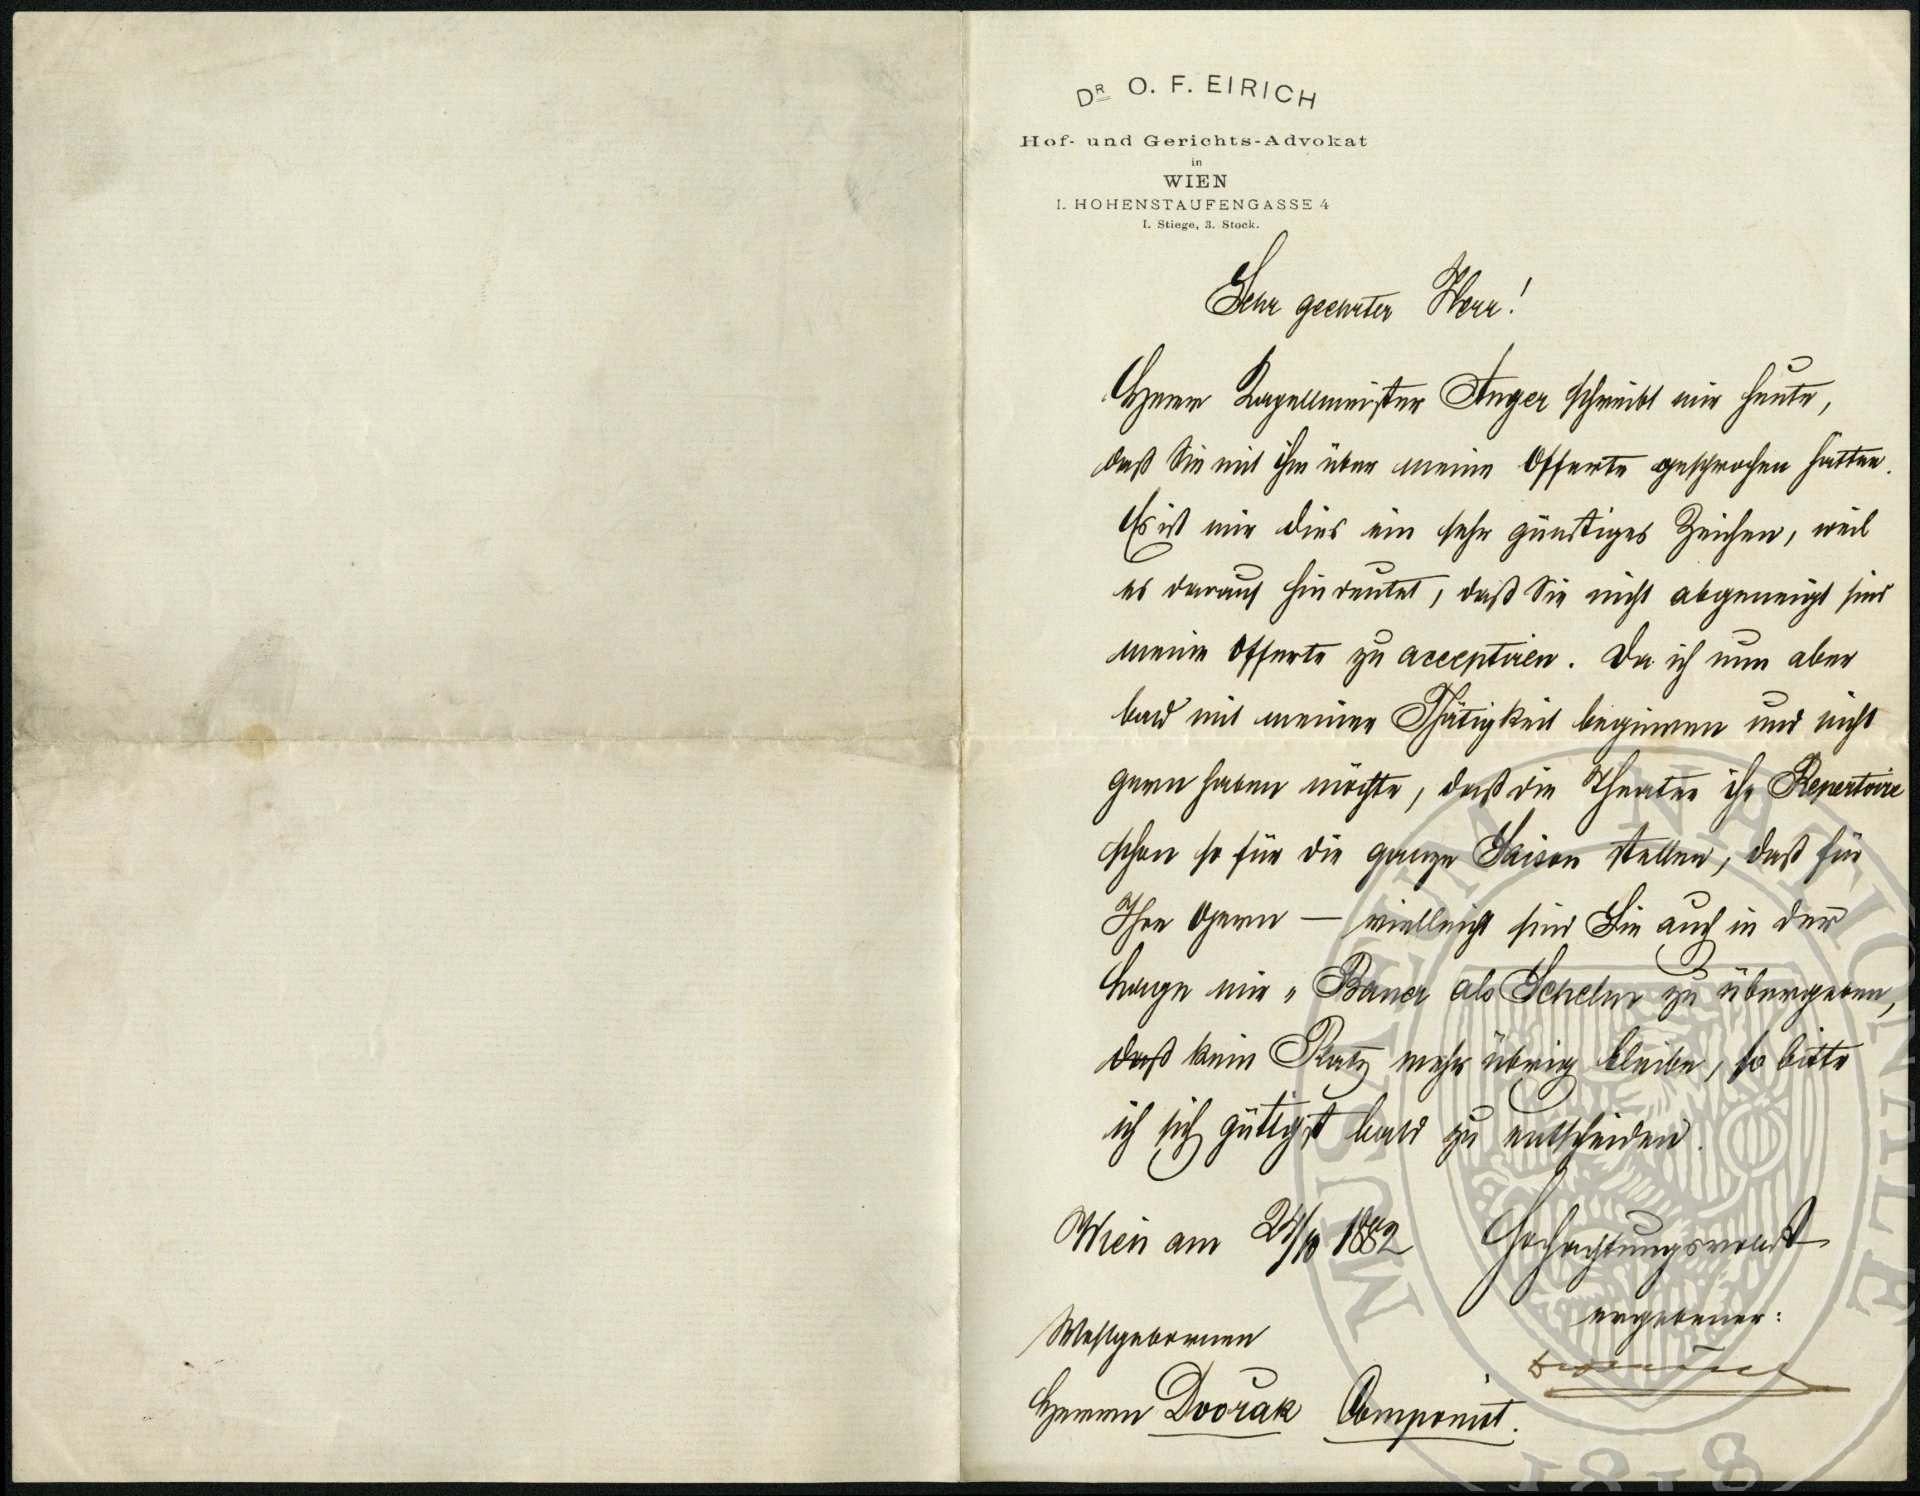 DR O. F. EIRICH
Hof- und Gerichts-Advokat
in
WIEN
I. HOHENSTAUFENGASSE 4
I. Stiege, 3. Stock.
Sehr geehrter Herr!
Herr Kapellmeister Anger schreibt mir heute,
daß Sie mit ihm über meine Offerte gesprochen hätten.
Es ist mir dies ein sehr günstiges Zeichen, weil
es darauf hindeutet, daß Sie nicht abgeneigt sind
meine Offerte zu acceptiren. Da ich nun aber
bald mit meiner Thätigkeit beginnen und nicht
gern haben möchte, daß die Theater ihr Repertoire
schon so für die ganze Saison stellen, daß für
Ihre Opern — vielleicht sind Sie auch in der
Lage mir „Bauer als Schelm zu übergeben,
daß kein Platz mehr übrig bleibe, so bitte
ich sich gütigst bald zu entscheiden.
Wien am 24/10 1882 Hochachtungsvollst
ergebener:
Wohlgebornen
Herrn Dvořak Componist.
MUSEUM NATIONALE
1818